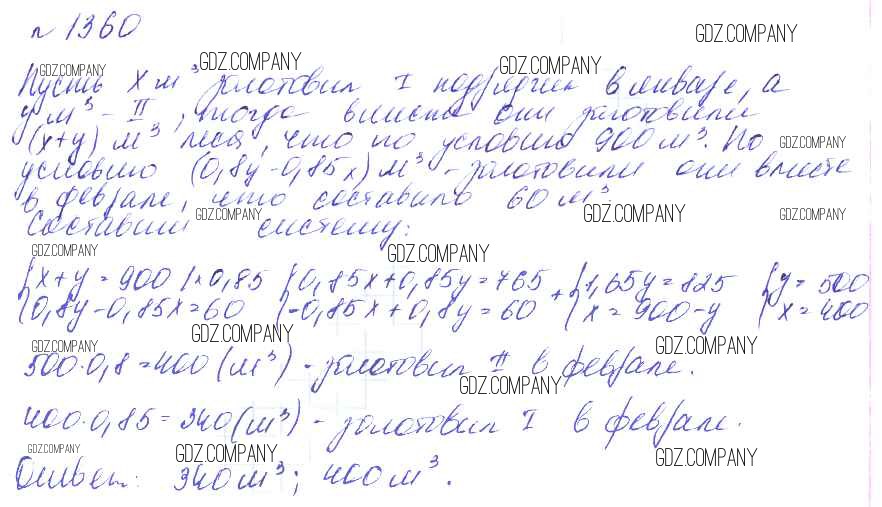 n 1360
GDZ.COMPANY
GDZ.COMPANY GDZ.COMPANY GDZ.COMPANY
Пусть x м³ заготовил I подрядчик в январе, а
y м³ - II, тогда вместе они заготовили
(x+y) м³ леса, что по условию 900 м³. По
GDZ.COMPANY
условию (0,8y-0,85x) м³ - заготовили они вместе
в феврале, что составило 60 м³.
GDZ.COMPANY GDZ.COMPANY GDZ.COMPANY
Составим систему:
GDZ.COMPANY GDZ.COMPANY
{x+y=900 |×0,85 {0,85x+0,85y=765 + {1,65y=825 {y=500
{0,8y-0,85x=60 {-0,85x+0,8y=60 {x=900-y {x=400
GDZ.COMPANY GDZ.COMPANY GDZ.COMPANY
500·0,8=400 (м³) - заготовил II в феврале.
GDZ.COMPANY
400·0,85=340 (м³) - заготовил I в феврале.
GDZ.COMPANY GDZ.COMPANY GDZ.COMPANY
Ответ: 340 м³; 400 м³.